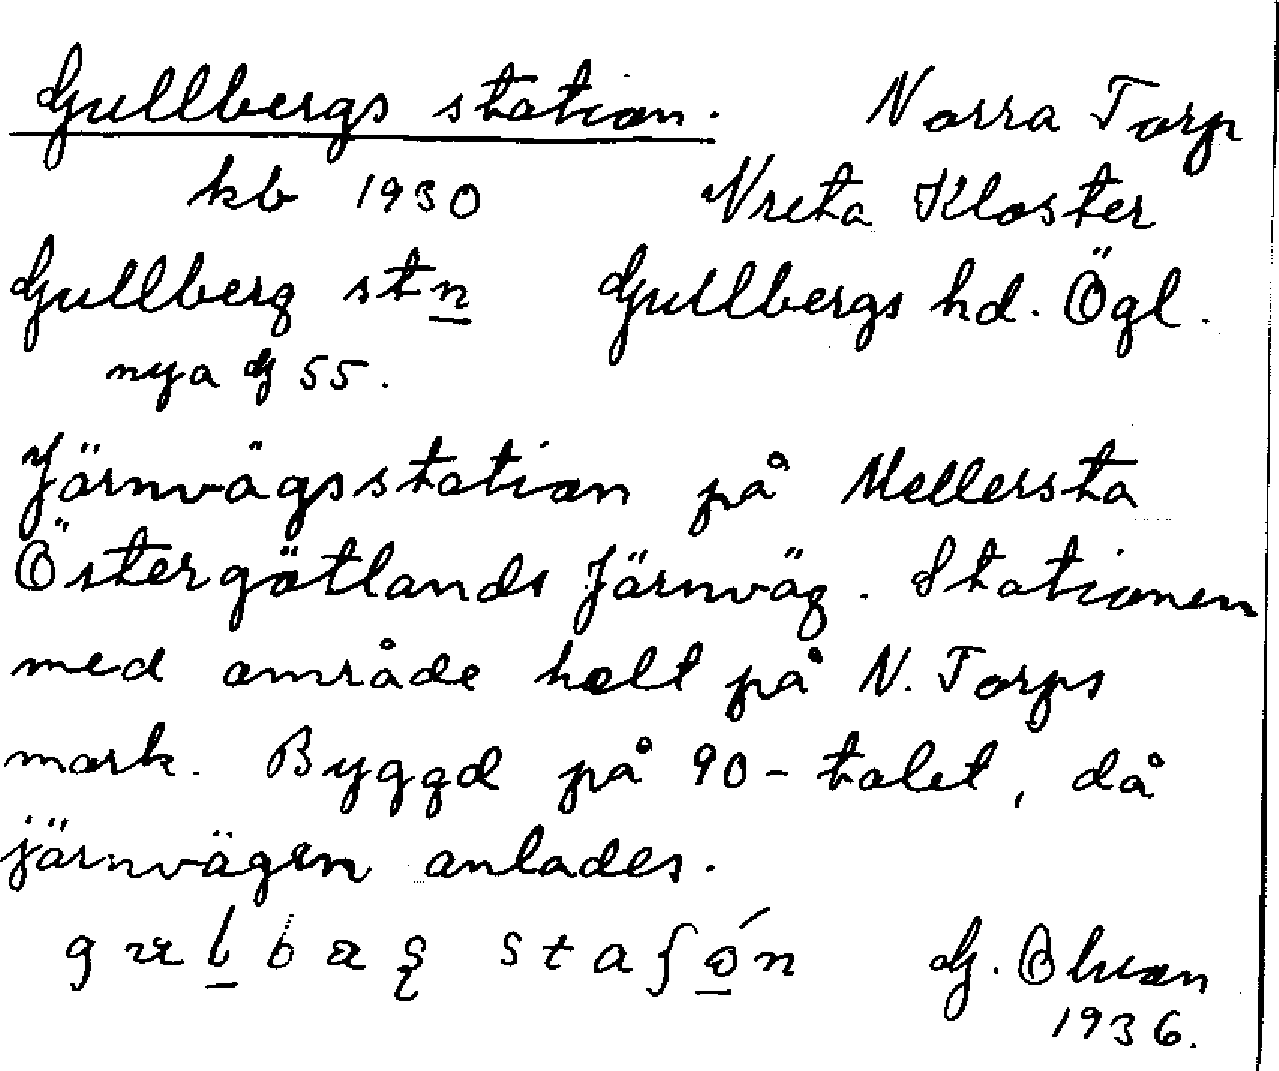 Gullbergs station. Norra Torp
kb 1930 Vreta Kloster
Gullberg stn Gullbergs hd. Ögl.
nya G 55.
Järnvägsstation på Mellersta
Östergötlands Järnväg. Stationen
med område helt på N. Torps
mark. Byggd på 90-talet, då
järnvägen anlades.
G. Olson
1936.